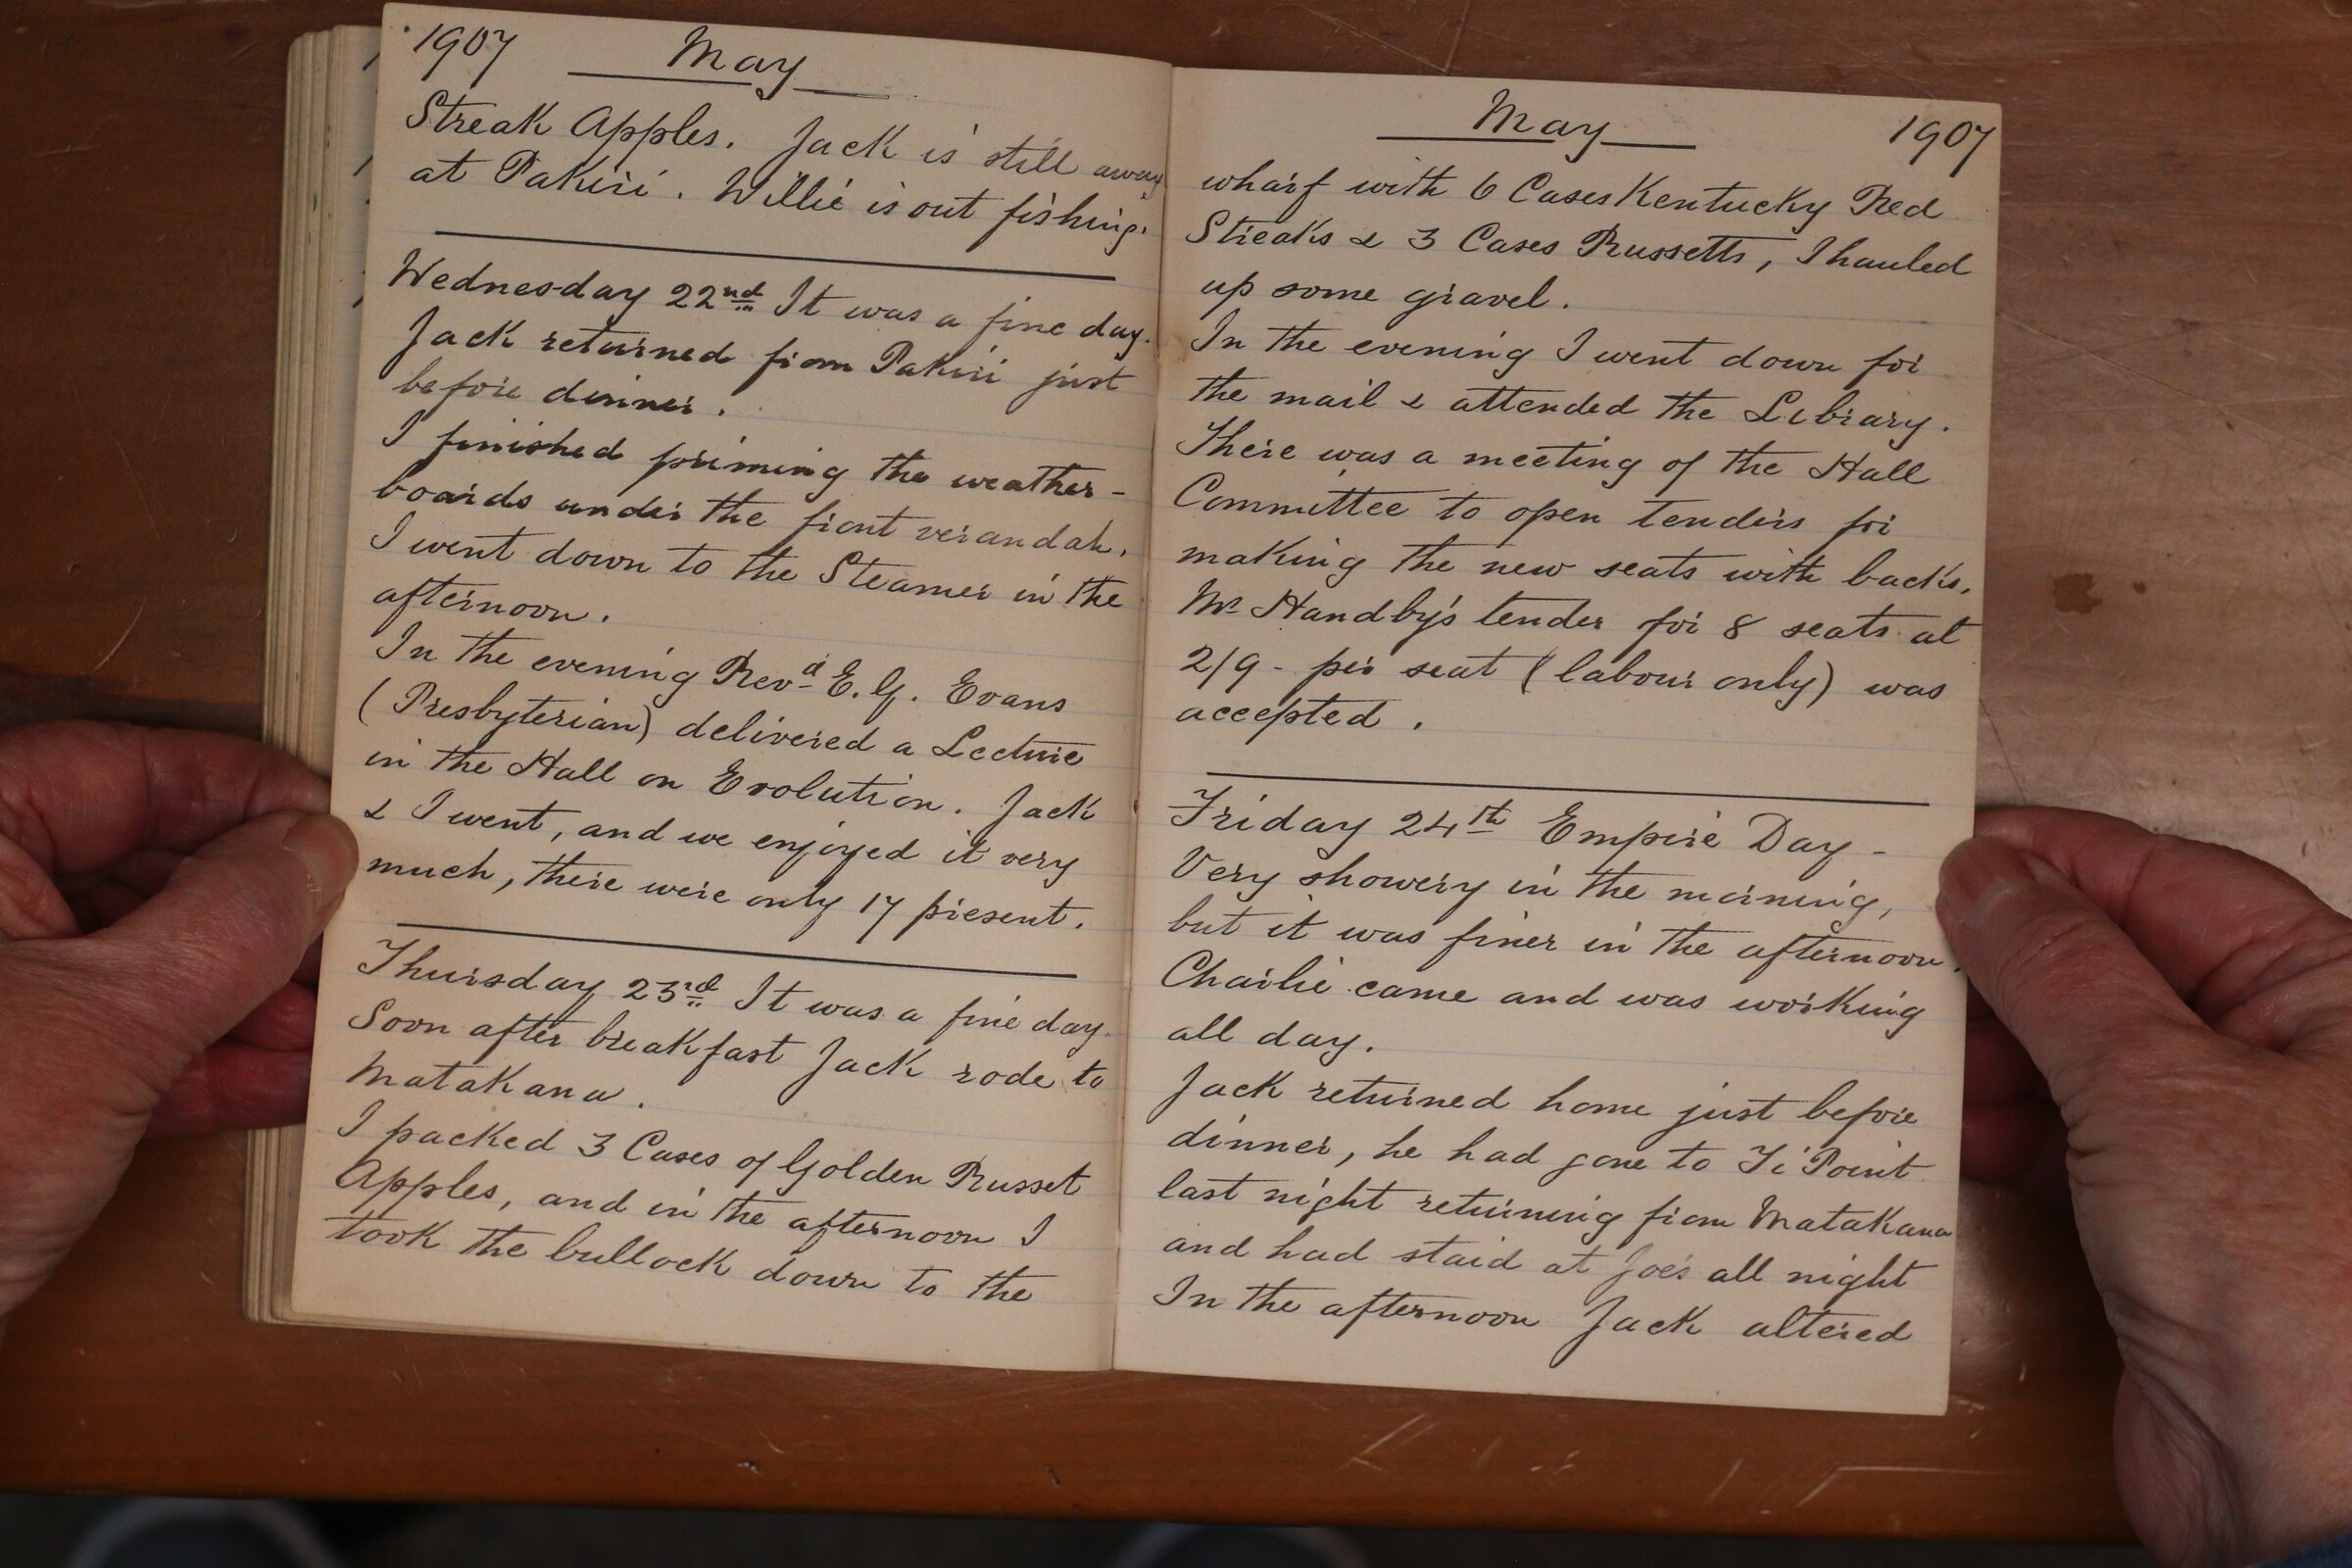 1907 May
Streak Apples. Jack is still away
at Pakiri. Willie is out fishing.
Wednesday 22nd It was a fine day.
Jack returned from Pakiri just
before dinner.
I finished priming the weather-
boards under the front verandah.
I went down to the Steamer in the
afternoon.
In the evening Revd E. G. Evans
(Presbyterian) delivered a Lecture
in the Hall on Evolution. Jack
& I went, and we enjoyed it very
much, there were only 17 present.
Thursday 23rd It was a fine day.
Soon after breakfast Jack rode to
Matakana.
I packed 3 Cases of Golden Russet
Apples, and in the afternoon I
took the bullock down to the
May 1907
wharf with 6 Cases Kentucky Red
Streaks & 3 Cases Russetts, I hauled
up some gravel.
In the evening I went down for
the mail & attended the Library.
There was a meeting of the Hall
Committee to open tenders for
making the new seats with backs.
Mr Handby's tender for 8 seats at
2/9 - per seat (labour only) was
accepted.
Friday 24th Empire Day -
Very showery in the morning,
but it was finer in the afternoon.
Charlie came and was working
all day.
Jack returned home just before
dinner, he had gone to Ti Point
last night returning from Matakana
and had staid at Joe's all night
In the afternoon Jack altered